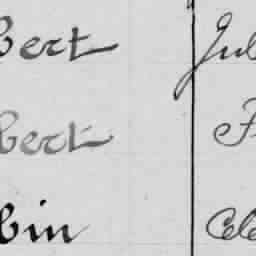 bert Jul
bert F
bin Cele